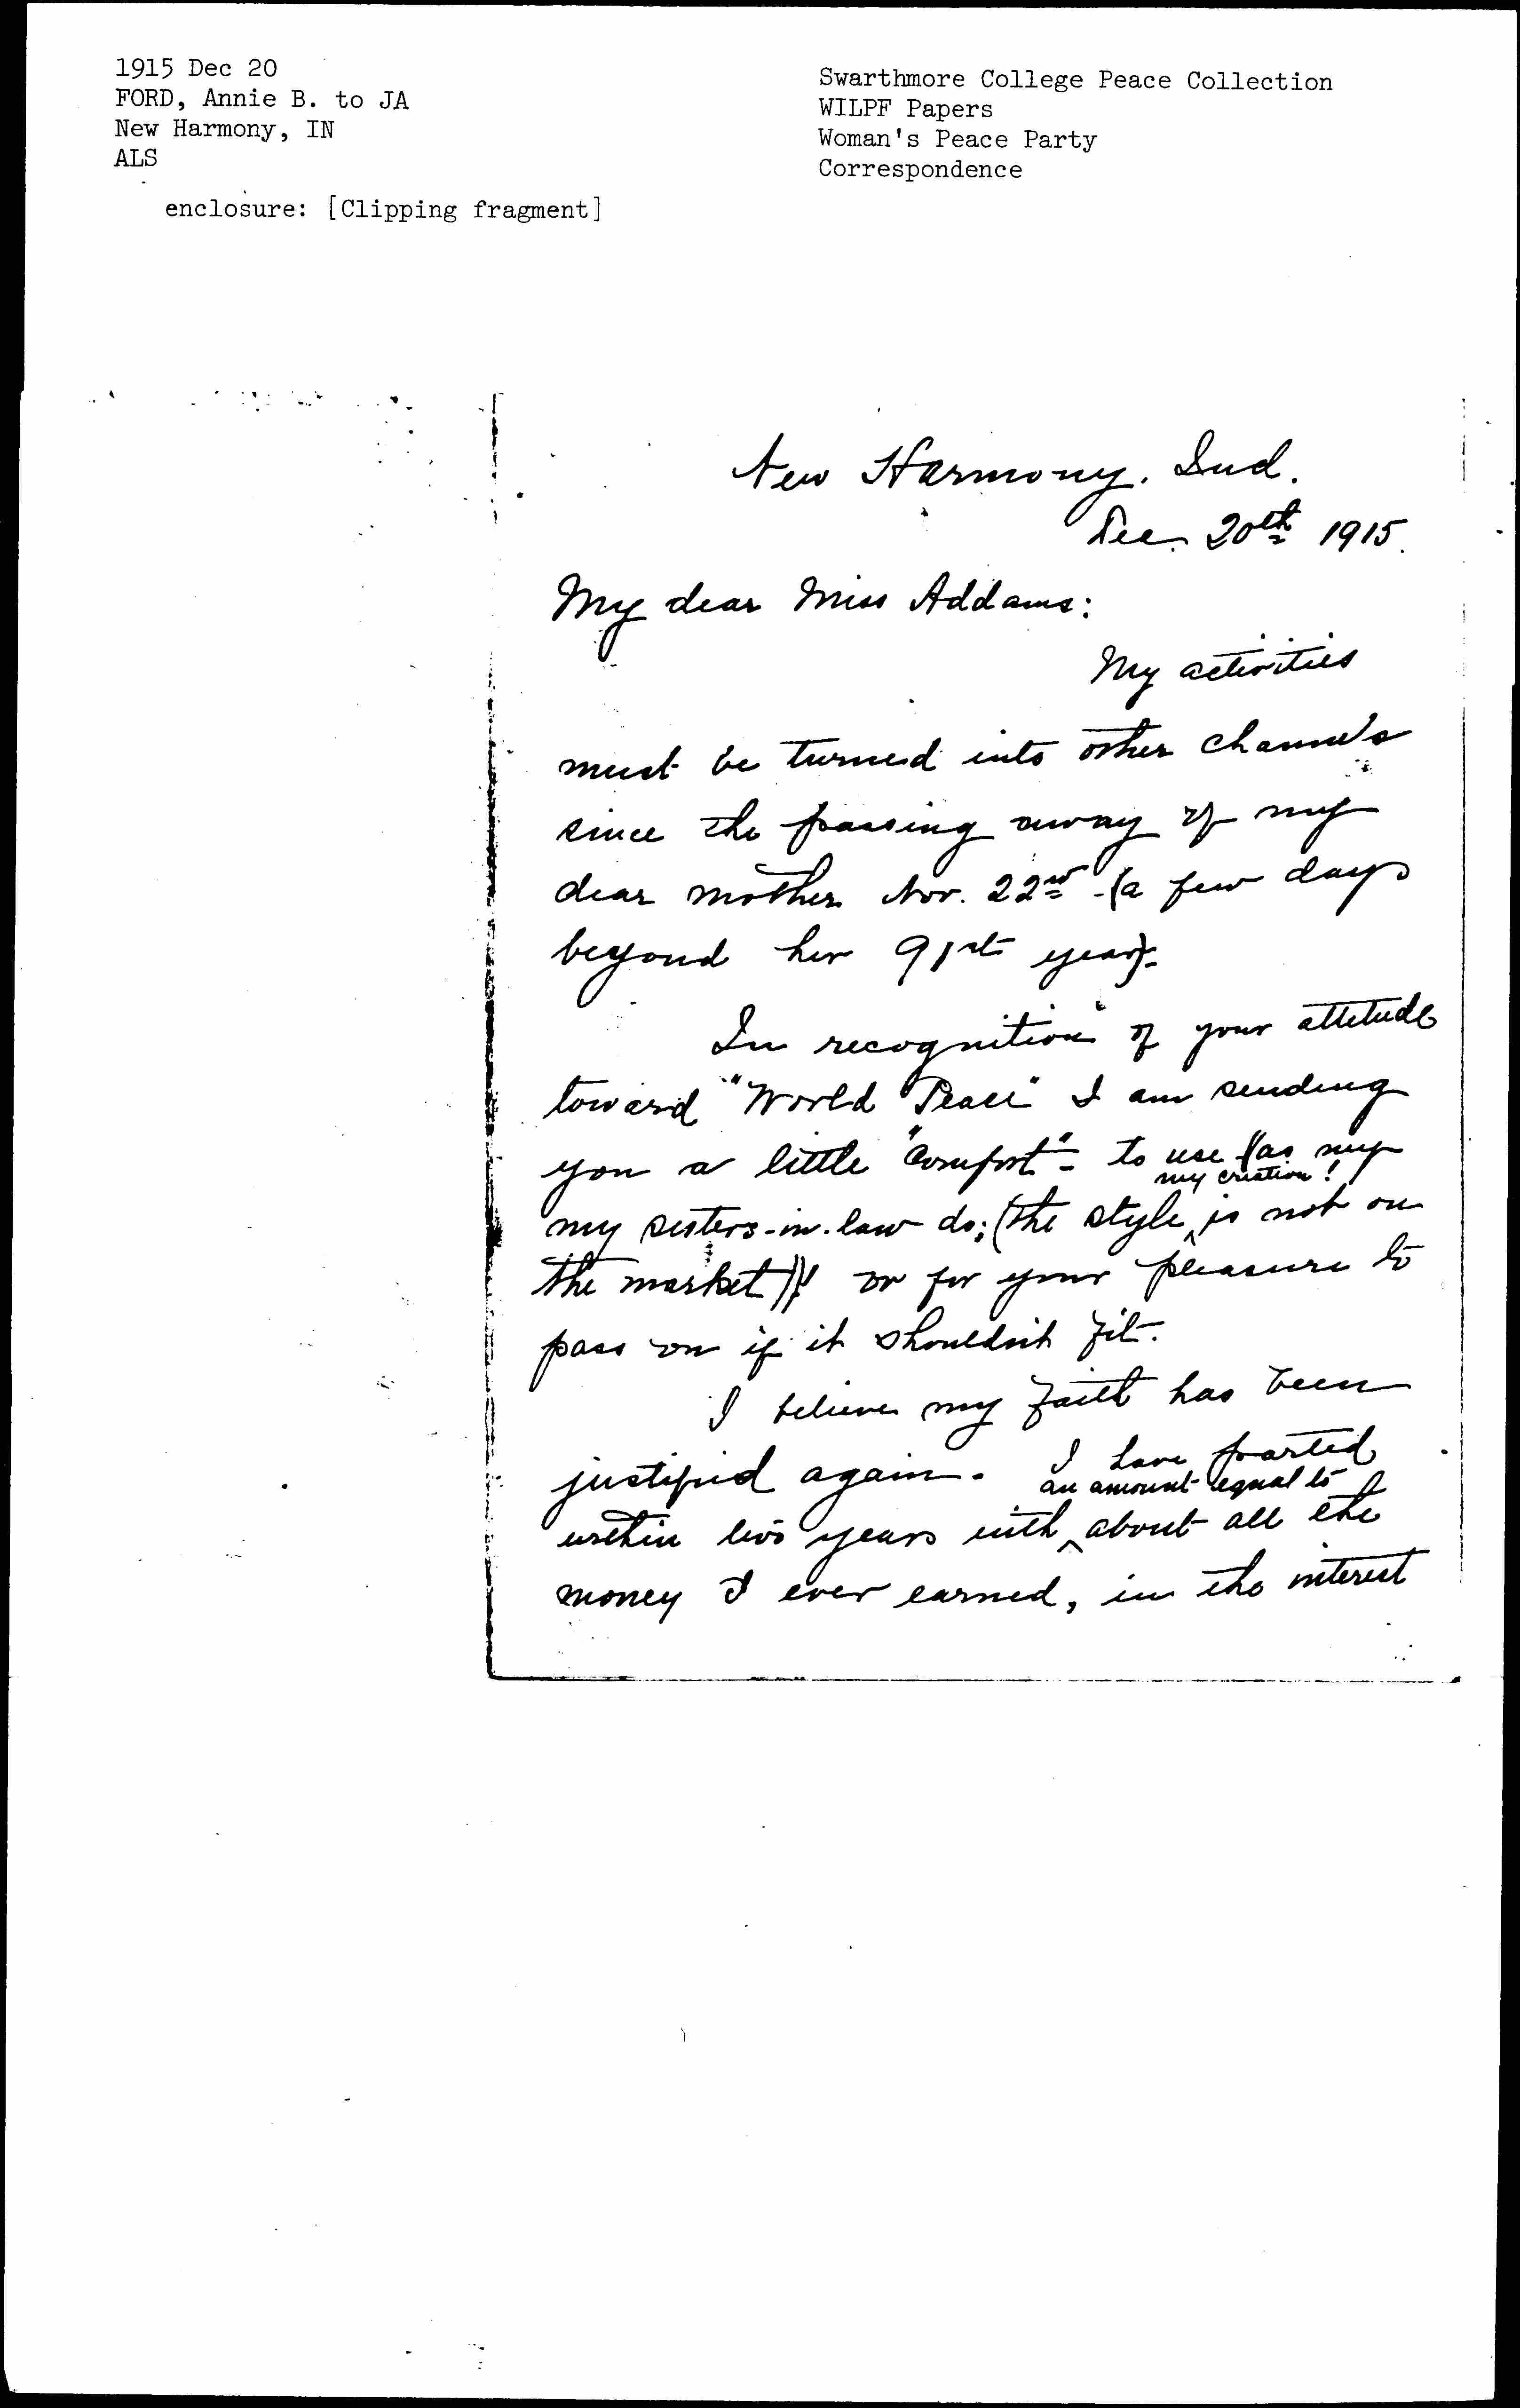 1915 Dec 20
FORD, Annie B. to JA
New Harmony, IN
ALS
enclosure: [Clipping fragment]
Swarthmore College Peace Collection
WILPF Papers
Woman's Peace Party
Correspondence
New Harmony. Ind.
Dec. 20th 1915.
My dear Miss Addams:
My activities
must be turned into other channels
since the passing away of my
dear mother Nov. 22nd - (a few days
beyond her 91st year).
In recognition of your attitude
toward "World Peace" I am sending
you a little "comfort" - to use (as my
my creation!
my sisters-in-law do; (the style ^ is not on
the market)) or for your pleasure to
pass on if it shouldn't fit.
I believe my faith has been
justified again. I have parted
an amount equal to
within two years with ^ about all the
money I ever earned, in the interest